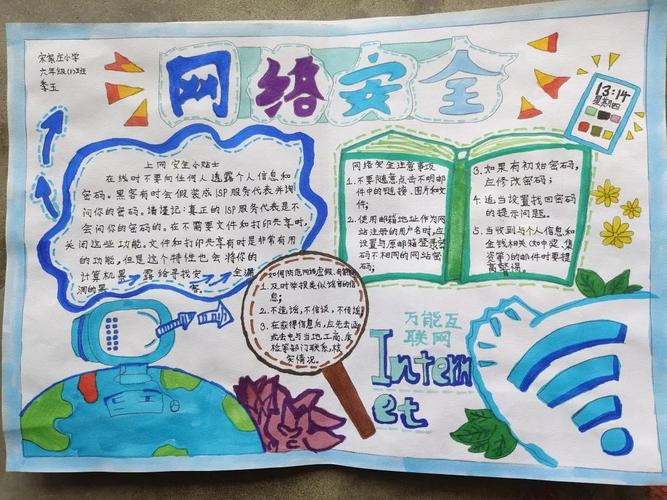 宋家庄小学
六年级(1)班
季玉
网络安全
13:14
星期四
上网安全小贴士
在线时不要向任何人透露个人信息和
密码。黑客有时会假装成ISP服务代表并询
问你的密码。请谨记:真正的ISP服务代表是不
会问你的密码的。在不需要文件和打印共享时,
关闭这些功能。文件和打印共享有时是非常有用
的功能,但是这个特性也会将你的
计算机暴露给寻找安全漏
洞的黑客。
网络安全注意事项
1.不要随意点击不明邮
件中的链接、图片和文
件;
2.使用邮箱地址作为网
站注册的用户名时,应
设置与原邮箱登录密
码不相同的网站密
码;
3.如果有初始密码,
应修改密码;
4.适当设置找回密码
的提示问题。
5.当收到与个人信息和
金钱相关(如中奖、集
资等)的邮件时要提
高警惕。
如何防范网络虚假、有害
1.及时举报类似谣言的信
息;
2.不造谣,不信谣,不传谣
3.在获得信息后,应先去
或去电与当地工商、质
检等部门联系,核
实情况。
万能互
联网
Intern
et